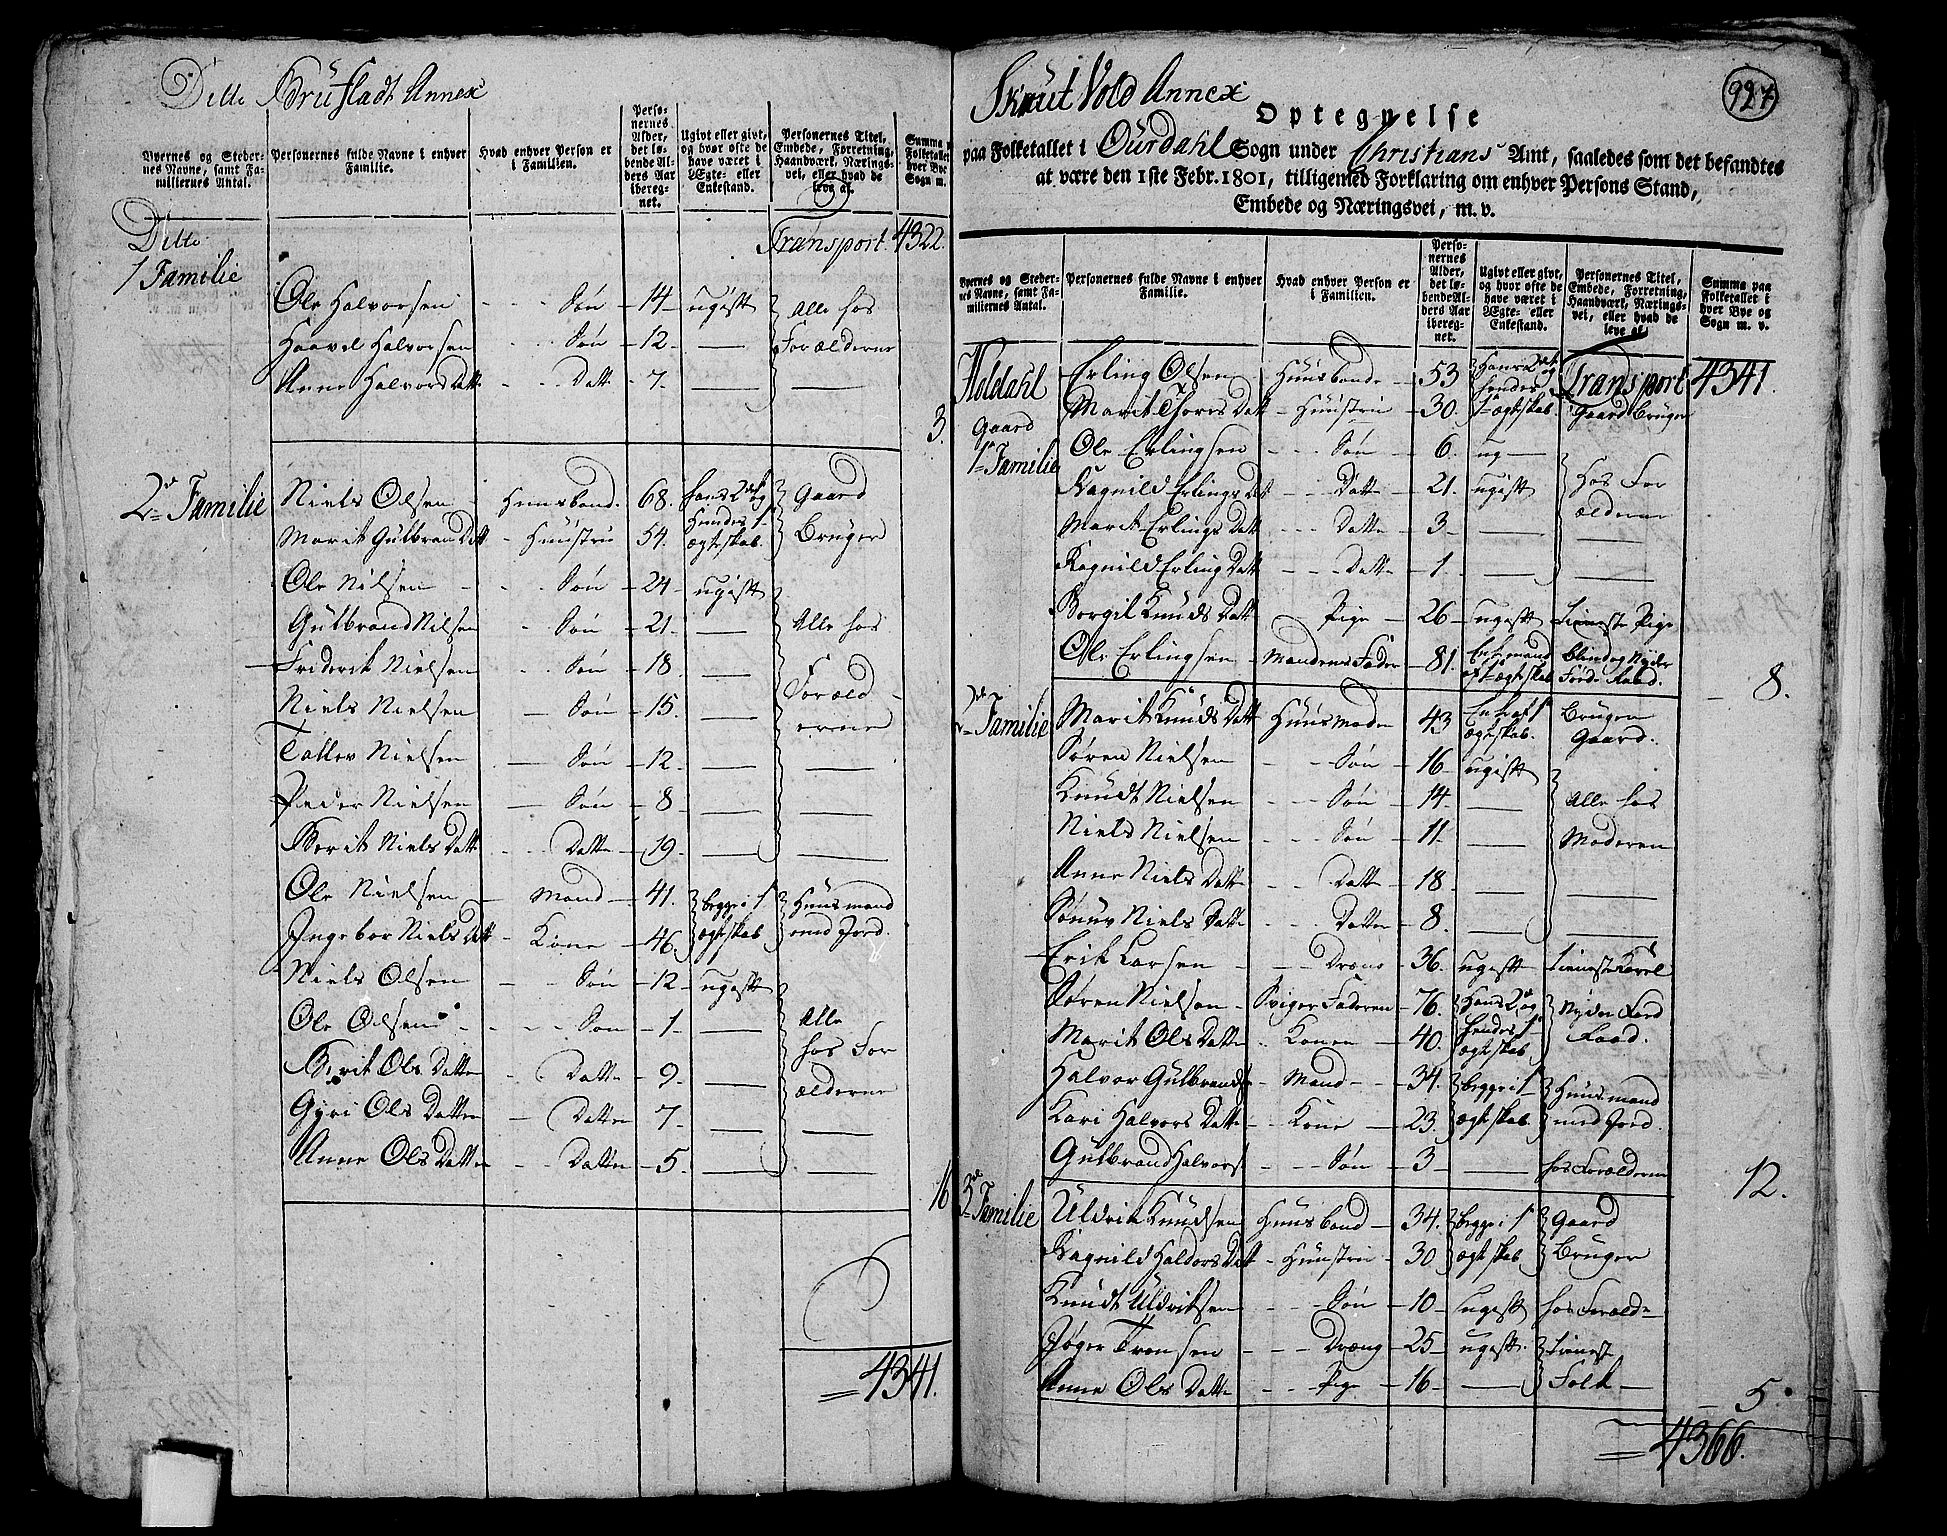 Ditto Brufladt Annex
Byernes og Steder-
nes Navne, samt Fa-
miliernes Antal.
Personernes fulde Navne i enhver
Familie.
Hvad enhver Person er
i Familien.
Perso-
nernes
Alder,
det lø-
bende Al-
ders Aar
ibereg-
net.
Ugivt eller givt,
og hvor ofte de
have været i
Ægte- eller
Enkestand.
Personernes Titel,
Embede, Forretning,
Haandværk, Nærings-
vei, eller hvad de
leve af.
Summa
Folketallet
hver Bye
Sogn m.
Ditto Transport 4322.
1 Familie
Ole Halvorsen - - - Søn - 14 - ugift Alle hos
Haavel Halvorsen - - - Søn - 12. — Forælderne
Anne Halvors Datt - - Datt - 7. — —
3.
2de Familie Niels Olsen - Huusbond. 68. hans 2det og Gaard
Marit Gulbran Datt - Huustru 54. Hendes 1- ægteskab. Bruger
Ole Nilsen - Søn - 24 - ugift
Gulbrand Nilsen - Søn - 21 - — Alle hos
Friderik Nielsen Søn - 18 — Foræld-
Niels Nielsen — Søn - 15. — erne
Tollev Nielsen — Søn - 12 - — —
Peder Nielsen — Søn - 8 — —
Berit Niels Datt - - Datt - 19 — —
Ole Nielsen — Mand - 41. begge i 1 Huusmand
Ingebor Niels Datt - Kone - 46. ægteskab med Jord.
Niels Olsen - - Søn - 12 - ugift
Ole Olsen - - - - Søn - 1 - — Alle
Berit Ols Datter - Datter - 9. — hos For
Gyri Ols Datter — Datter - 7 - — ælderne
Anne Ols Datter - - Datter - 5. — —
16
= 4341.
Skrut Vold Annex
927
Optegnelse
paa Folketallet i Ourdahl Sogn under Christians Amt, saaledes som det befandtes
at være den 1ste Febr. 1801, tilligemed Forklaring om enhver Persons Stand,
Embede og Næringsvei, m. v.
Byernes og Steder-
nes Navne, samt Fa-
miliernes Antal.
Personernes fulde Navne i enhver
Familie.
Hvad enhver Person er
i Familien.
Perso-
nernes
Alder,
det lø-
bende Al-
ders Aar
ibereg-
net.
Ugivt eller givt,
og hvor ofte de
have været i
Ægte- eller
Enkestand.
Personernes Titel,
Embede, Forretning,
Haandværk, Nærings-
vei, eller hvad de
leve af.
Summa paa
Folketallet i
hver Bye og
Sogn m. v.
Erling Olsen Huusbonde - 53 Hans 2det og Transport 4341.
Gaard Marit Thores Datt - Huustru - 30. hendes 1- ægteskab Gaard Bruger
1te Familie Ole Erlingsen - - - Søn - 6. ug —
Ragnild Erlings Dat - - Datt - 21. ugift Hos For
Marit Erlings Datt - - - Datte - 3 — — ælderne
Ragnild Erling Datt - - - Datte - 1. — —
Borgil Knuds Datt - - Pige - 26 - ugift tieneste Pige
Ole Erlingsen - Mandens Fader - 81. Enkemand af 1 Ægteskab blind og Nyder Føderaad.
8.
2de Familie Marit Knuds Datt Huusmoder 43 Enke af 1 ægteskab. Bruger Gaard.
Søren Nielsen - - Søn - 16 ugift
Knudt Nielsen - - Søn - 14 - — Alle hos
Niels Nielsen - - - Søn - 11 - — Moderen
Anne Niels Datte - - Datt - 18 - — —
Niels Datte - - Datter - 8. — —
Erik Larsen - - - Dræng 36. ugift - tieneste Karl
Søren Nielsen - Sviger Faderen - 76. Hans 2det og Nyder Førd
Marit Ols Datte - Konen - 40. hendes 1te ægteskab Raad.
Halvor Gulbrands - Mand - - 34. begge i 1 Huusmand
Kari Halvors Datte - Kone - 23. ægteskab med Jord.
Gulbrand Halvors - - - Søn - 3 — — hos Forælderne
12.
3de Familie Uldrik Knudsen Huusbond - 34. begge i 1 Gaard
Ragnild Haldors Datt - Huustru - 30 ægteskab Bruger
Knudt Uldriksen - - - Søn - 10 - ugift hos Foræld-
Tronsen - - - Dræng - 25 - ugift. tienest
Anne Ols Datte - - Pige - 16 - — Folk —
- 5.
= 4366.